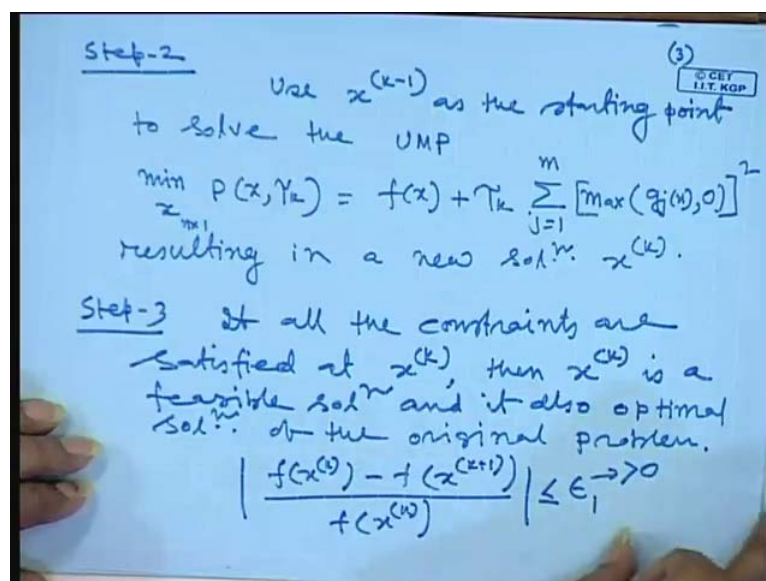 Step-2
(3)
© CET
I.I.T. KGP
Use x^(k-1) as the starting point
to solve the UMP
min P(x, γ_k) = f(x) + γ_k Σ [max(g_j(x), 0)]^2
x n×1
m
j=1
resulting in a new sol^n. x^(k).
Step-3 If all the constraints are
satisfied at x^(k), then x^(k) is a
feasible sol^n and it also optimal
sol^n. of the original problem.
| f(x^(k)) - f(x^(k+1)) / f(x^(k)) | ≤ ε_1 → >0